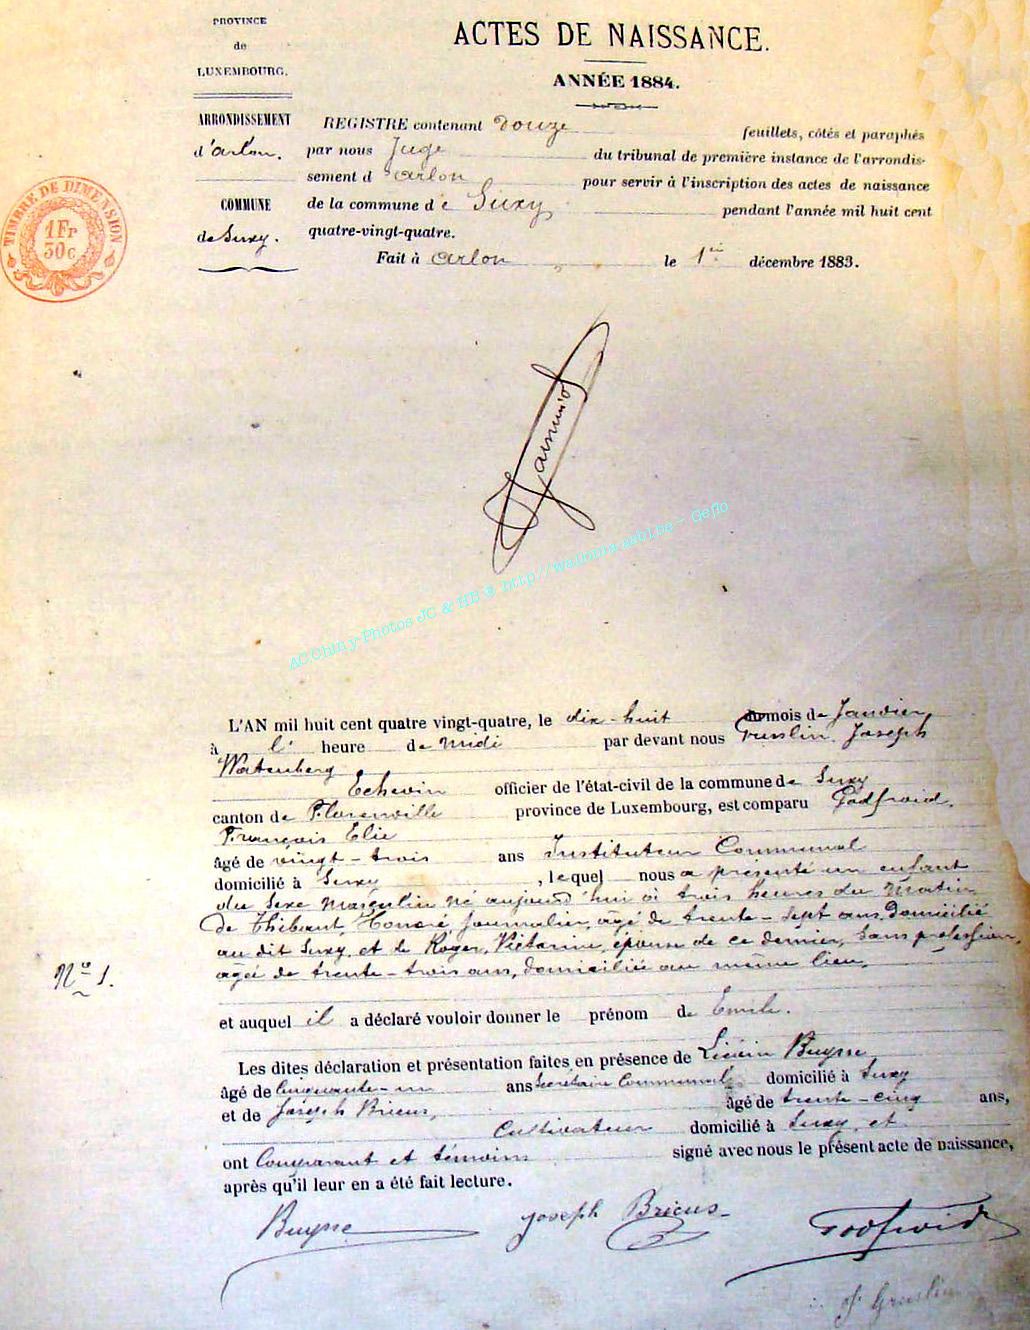 PROVINCE
de
LUXEMBOURG.
ARRONDISSEMENT
d'arlon.
COMMUNE
de Suxy.
TIMBRE DE DIMENSION
1Fr
30c
ACTES DE NAISSANCE.
ANNÉE 1884.
REGISTRE contenant douze feuillets, côtés et paraphés
par nous Juge du tribunal de première instance de l'arrondis-
sement d'arlon pour servir à l'inscription des actes de naissance
de la commune de Suxy pendant l'année mil huit cent
quatre-vingt-quatre.
Fait à arlon le 1er décembre 1883.
AC Chiny-Photos JC & HB @ http//wallonia.asbl.be - Geflo
L'AN mil huit cent quatre vingt-quatre, le dix-huit du mois de Janvier,
à l' heure de midi par devant nous Joseph
Watenberg
Echevin officier de l'état-civil de la commune de Suxy
canton de Florenville province de Luxembourg, est comparu Godfroid,
François Elie
âgé de vingt-trois ans Instituteur Communal
domicilié à Suxy, lequel nous a présenté un enfant
du sexe masculin né aujourd'hui à trois heures du matin
de Thibaut, Honoré Journalier, agé de trente-sept ans, domicilié
au dit Suxy, et de Roger, Victorine, épouse de ce dernier, sans profession,
agée de trente-trois ans, domiciliée au même lieu,
No 1.
et auquel il a déclaré vouloir donner le prénom de Emile.
Les dites déclaration et présentation faites en présence de Buysse
âgé de Cinquante-un ans Secrétaire Communal domicilié à Suxy
et de Joseph Bricus, âgé de trente-cinq ans,
Cultivateur domicilié à Suxy, et
ont Comparant et témoins signé avec nous le présent acte de naissance,
après qu'il leur en a été fait lecture.
Buysse
Joseph Bricus
Godfroid